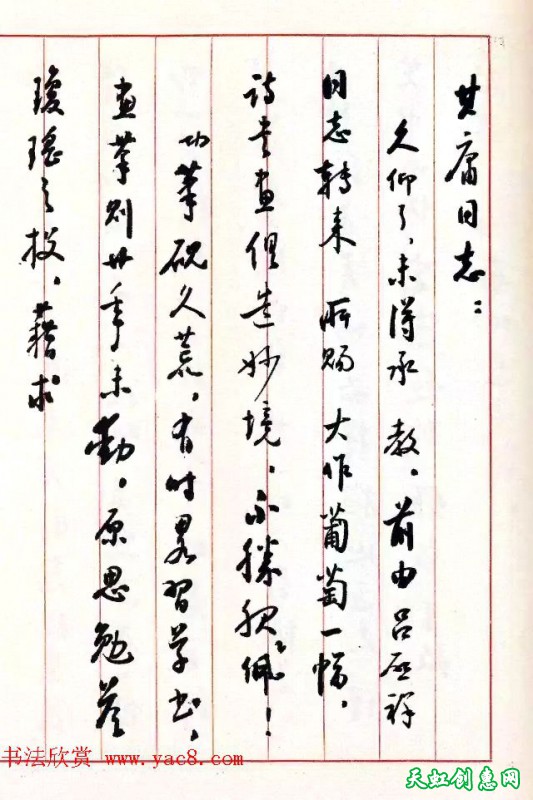 其庸同志：
久仰了，未得承 教。前由吕启祥
同志转来 所赐 大作葡萄一幅，
诗书画俱造妙境，不胜钦佩！
功笔砚久荒，有时略习学书，
画笔则廿年未动。原思勉答
琼瑶之投，藉求
书法欣赏 www.yac8.com
天虹创意网